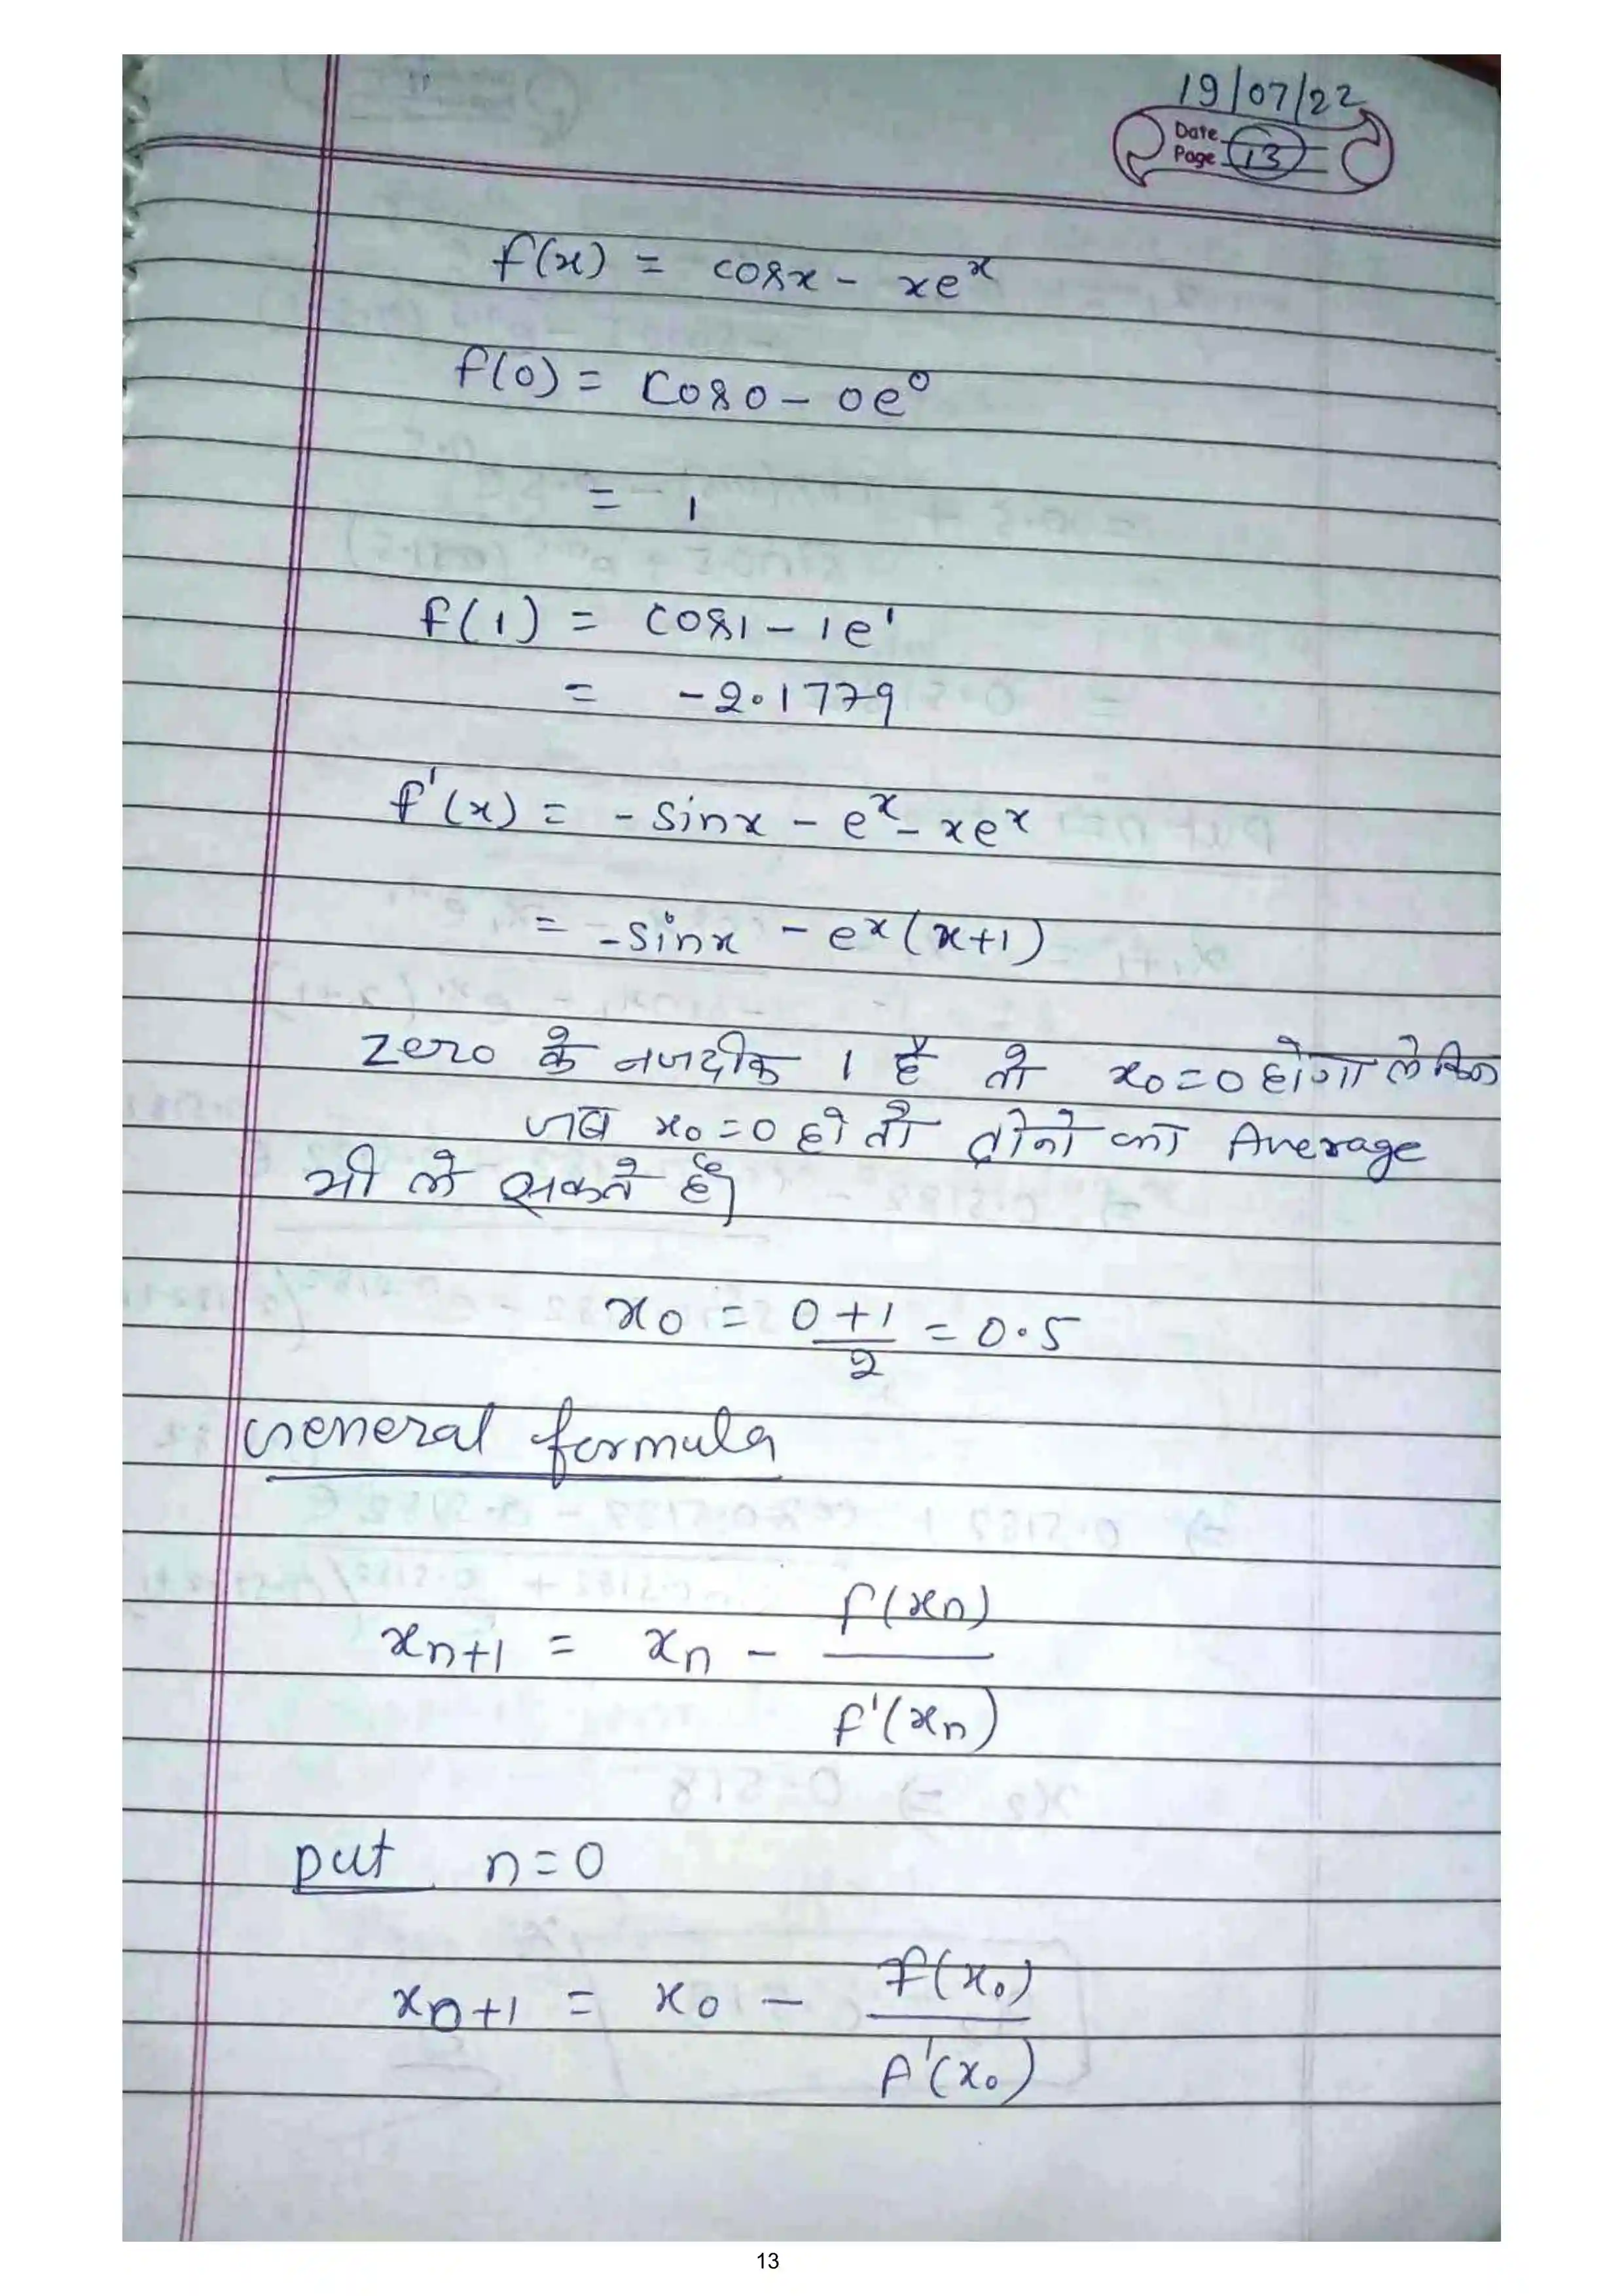 19/07/22
Date
Page 13
f(x) = cosx - xe^x
f(0) = cos0 - 0e^0
= 1
f(1) = cos1 - 1e^1
= -2.1779
f'(x) = -sinx - e^x - xe^x
= -sinx - e^x(x+1)
zero के नजदीक 1 है तो x0=0 होगा लेकिन
जब x0=0 हो तो दोनो का Average
भी ले सकते है।
x0 = (0+1)/2 = 0.5
General formula
x_{n+1} = x_n - f(x_n)/f'(x_n)
put n=0
x_{0+1} = x_0 - f(x_0)/f'(x_0)
13